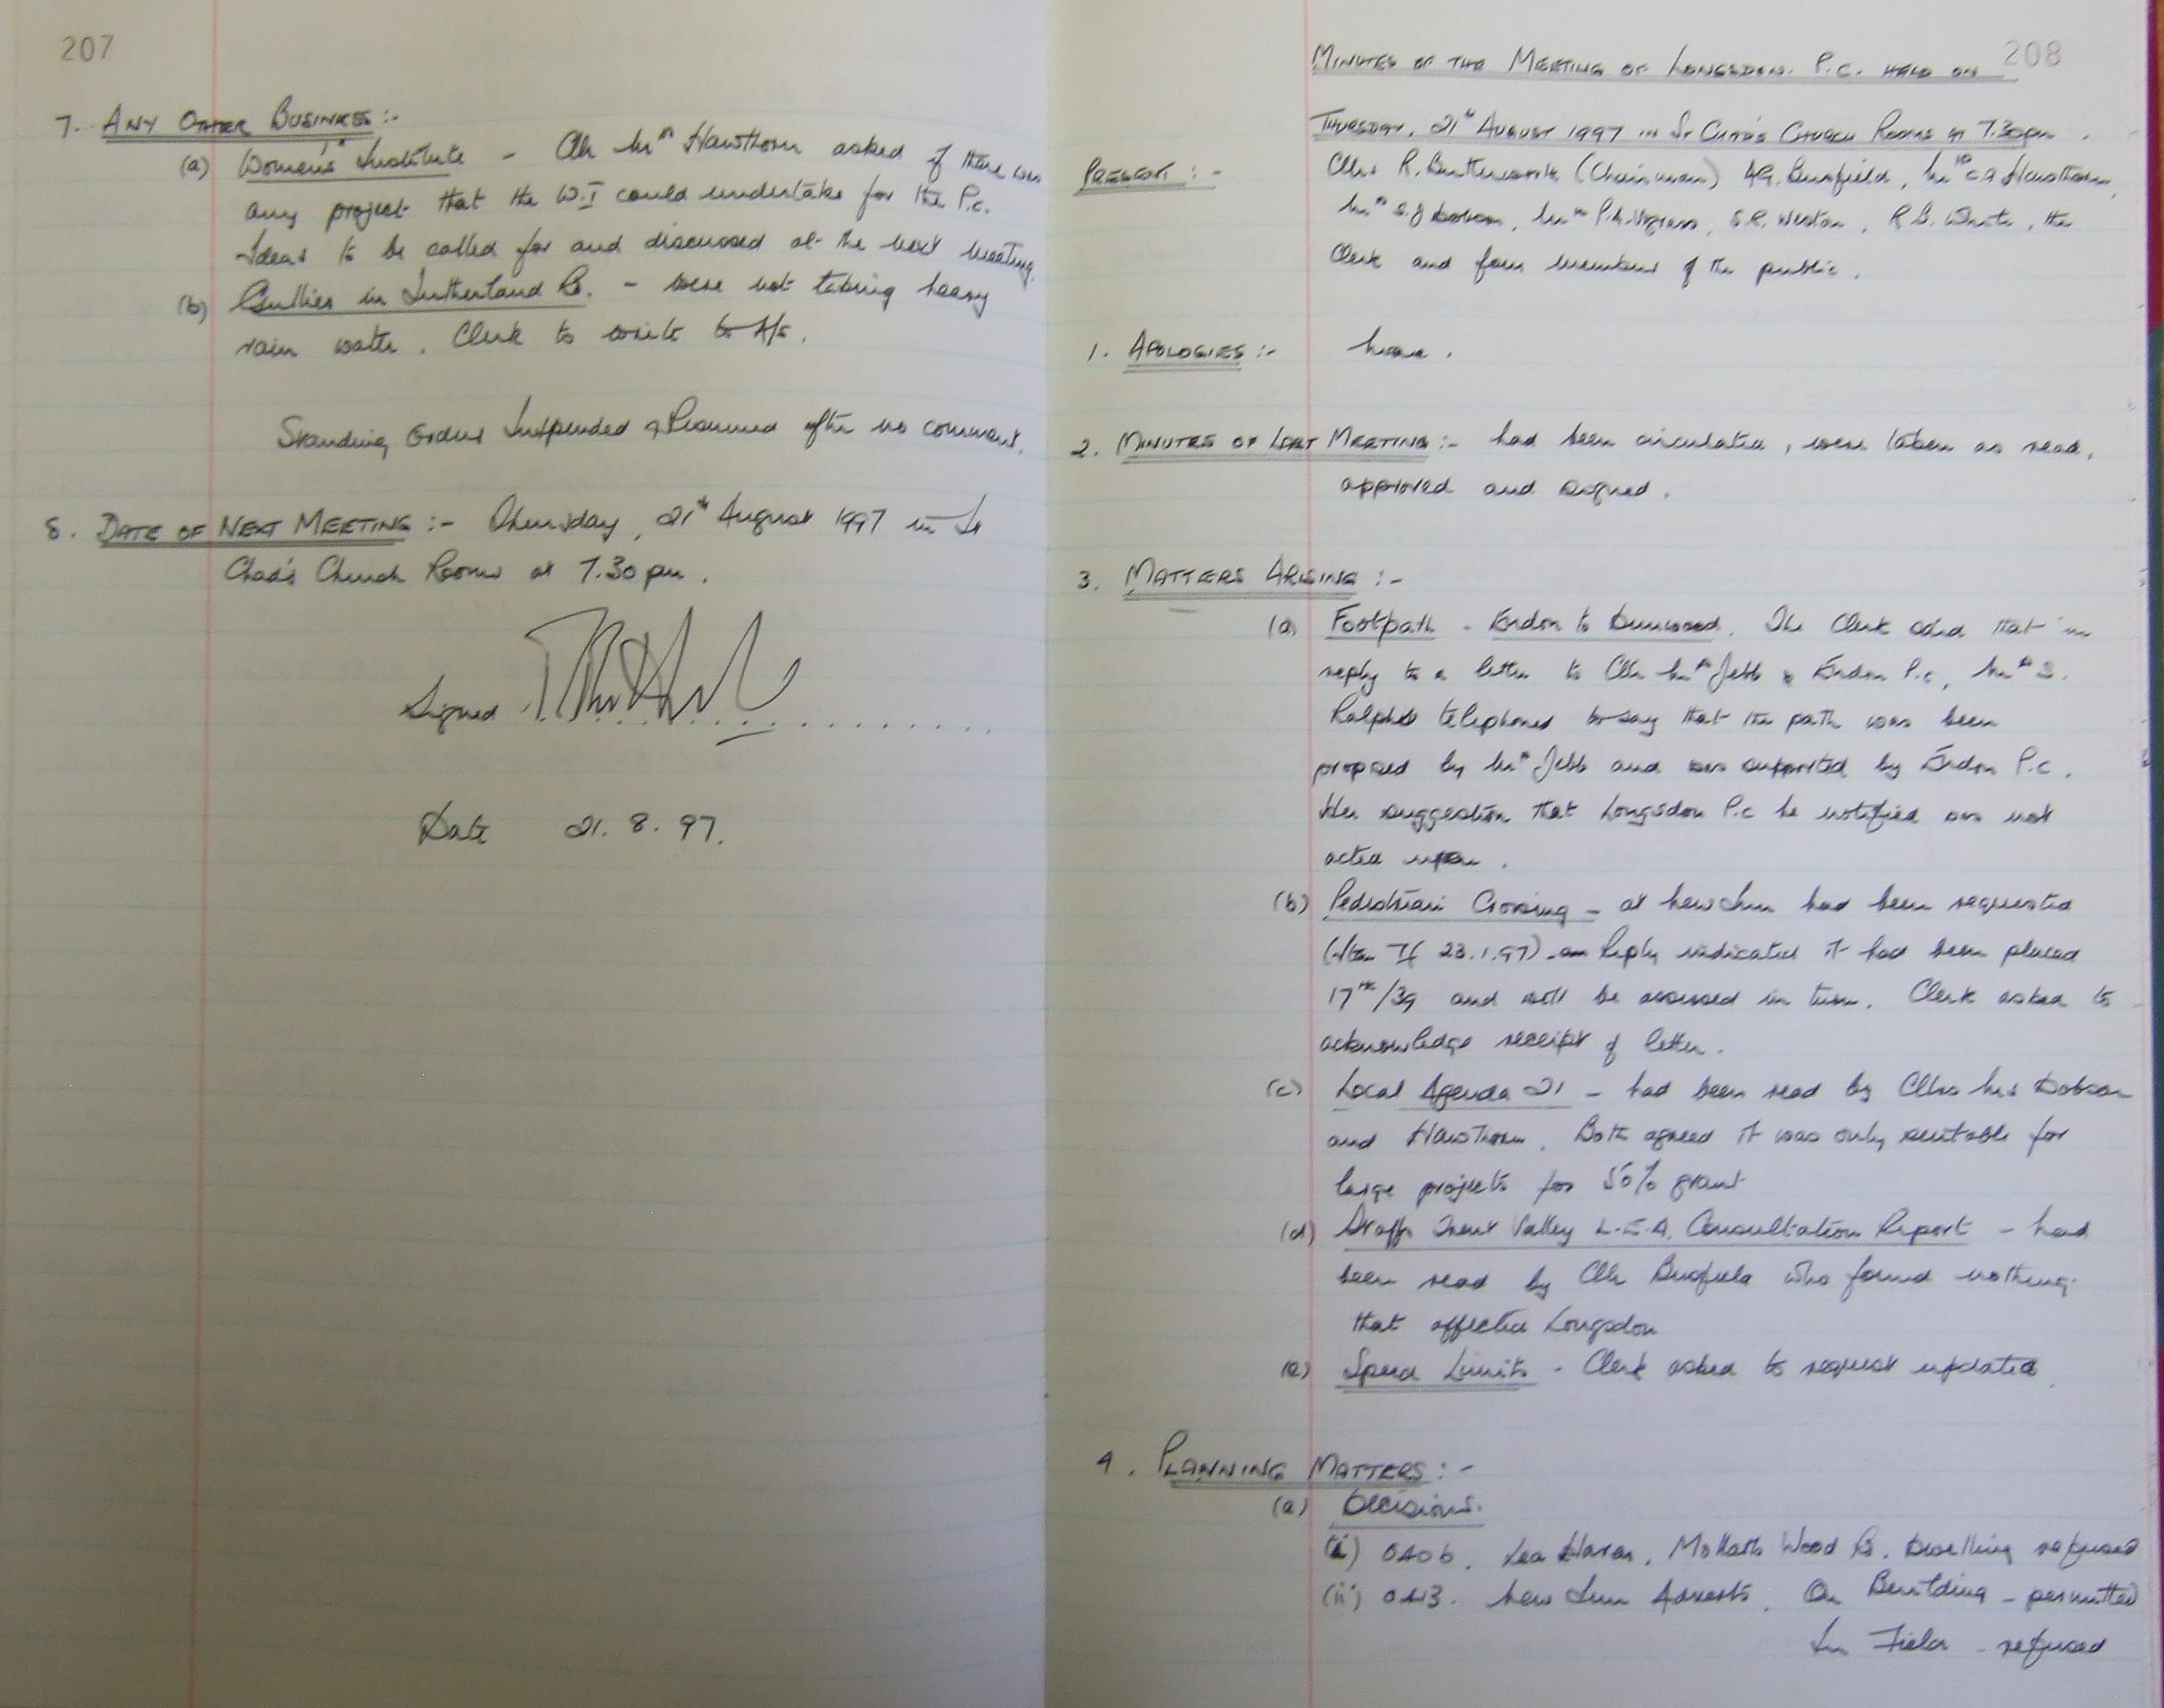 207
7. ANY OTHER BUSINESS :-
(a) Women's Institute - Cllr Mrs Hawthorn asked if there was
any project that the W.I could undertake for the P.C.
Ideas to be called for and discussed at the next meeting.
(b) Gullies in Sutherland Rd. - were not taking heavy
rain water. Clerk to write to H/S.
Standing Orders Suspended & Resumed after no comment.
8. DATE OF NEXT MEETING :- Thursday, 21st August 1997 in St
Chad's Church Rooms at 7.30 pm.
Signed
Date 21. 8. 97.
208
MINUTES OF THE MEETING OF LONGSDON. P.C. HELD ON
THURSDAY, 21st AUGUST 1997 IN ST CHAD'S CHURCH ROOMS AT 7.30pm.
PRESENT :- Cllrs R. Butterworth (Chairman) Busfield, Mrs C A Hawthorn,
Mrs S.J Dobson, Mrs S.R. Weston, R.G. White, the
Clerk and four members of the public.
1. APOLOGIES :- None.
2. MINUTES OF LAST MEETING :- had been circulated, were taken as read,
approved and signed.
3. MATTERS ARISING :-
(a) Footpath - Endon to Dunwood. The Clerk said that in
reply to a letter to Cllr Mrs Jebb & Endon P.C, Mrs S.
Ralphs telephoned to say that the path was been
proposed by Mrs Jebb and was supported by Endon P.C.
Her suggestion that Longsdon P.C be notified was not
acted upon.
(b) Pedestrian Crossing - at New Inn had been requested
(Item 7f 23.1.97) Reply indicated it had been placed
17th/39 and will be assessed in turn. Clerk asked to
acknowledge receipt of letter.
(c) Local Agenda 21 - had been read by Cllrs Mrs Dobson
and Hawthorn. Both agreed it was only suitable for
large projects for 50% grant
(d) Staffs Trent Valley L.E.A. Consultation Report - had
been read by Cllr Busfield who found nothing
that affected Longsdon
(e) Speed Limits - Clerk asked to request updated.
4. PLANNING MATTERS :-
(a) Decisions.
(i) 0406. Lea Haven, Mollatts Wood Rd. Dwelling refused
(ii) 0413. New Inn Adverts. On Building - permitted
In Field - refused